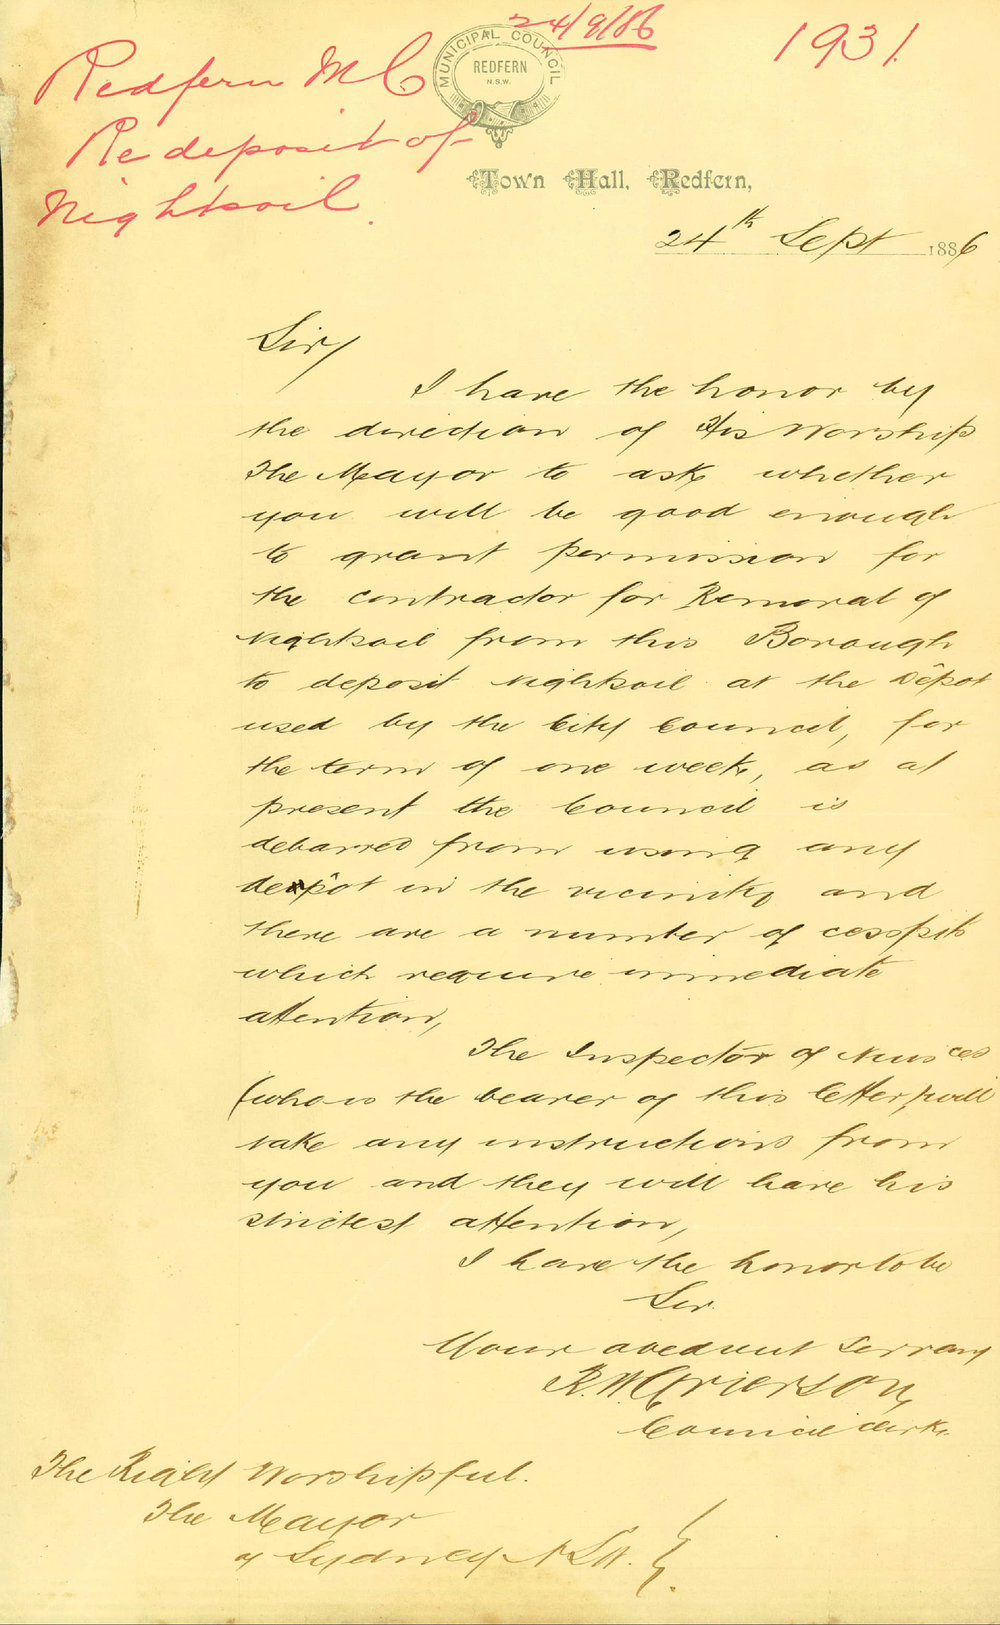 24/9/86
1931.
Redfern M.C.
Re deposit of
Nightsoil.
MUNICIPAL COUNCIL
REDFERN
N.S.W.
Town Hall, Redfern,
24th Sept 1886
Sir/
I have the honor by
the direction of His Worship
The Mayor to ask whether
you will be good enough
to grant permission for
the contractor for Removal of
Nightsoil from this Borough
to deposit Nightsoil at the Dêpot
used by the City Council, for
the term of one week, as at
present the Council is
debarred from using any
depôt in the vicinity and
there are a number of cesspits
which require immediate
attention,
The Inspector of Nuisces
(who is the bearer of this letter) will
take any instructions from
you and they will have his
strictest attention,
I have the honor to be
Sir.
Your obedient Servant
R.W. Grierson,
Council Clerk.
The Right Worshipful.
The Mayor
of Sydney N.S.W.